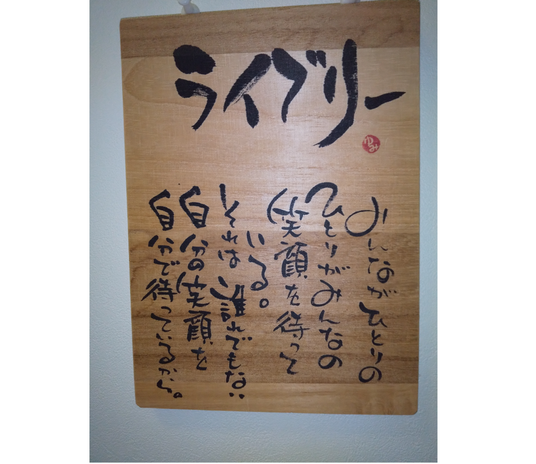 ライブリー
みんながひとりの
ひとりがみんなの
笑顔を待って
いる。
それは誰れでもない
自分の笑顔を
自分で待っているから。